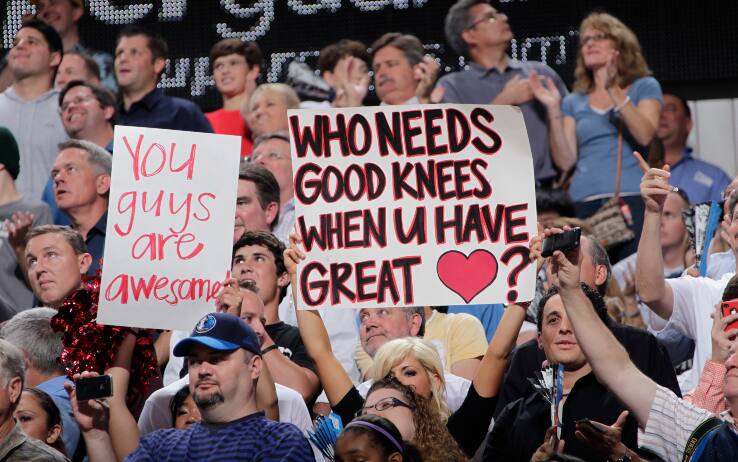 You
guys
are
awesome!
WHO NEEDS
GOOD KNEES
WHEN U HAVE
GREAT ♥?